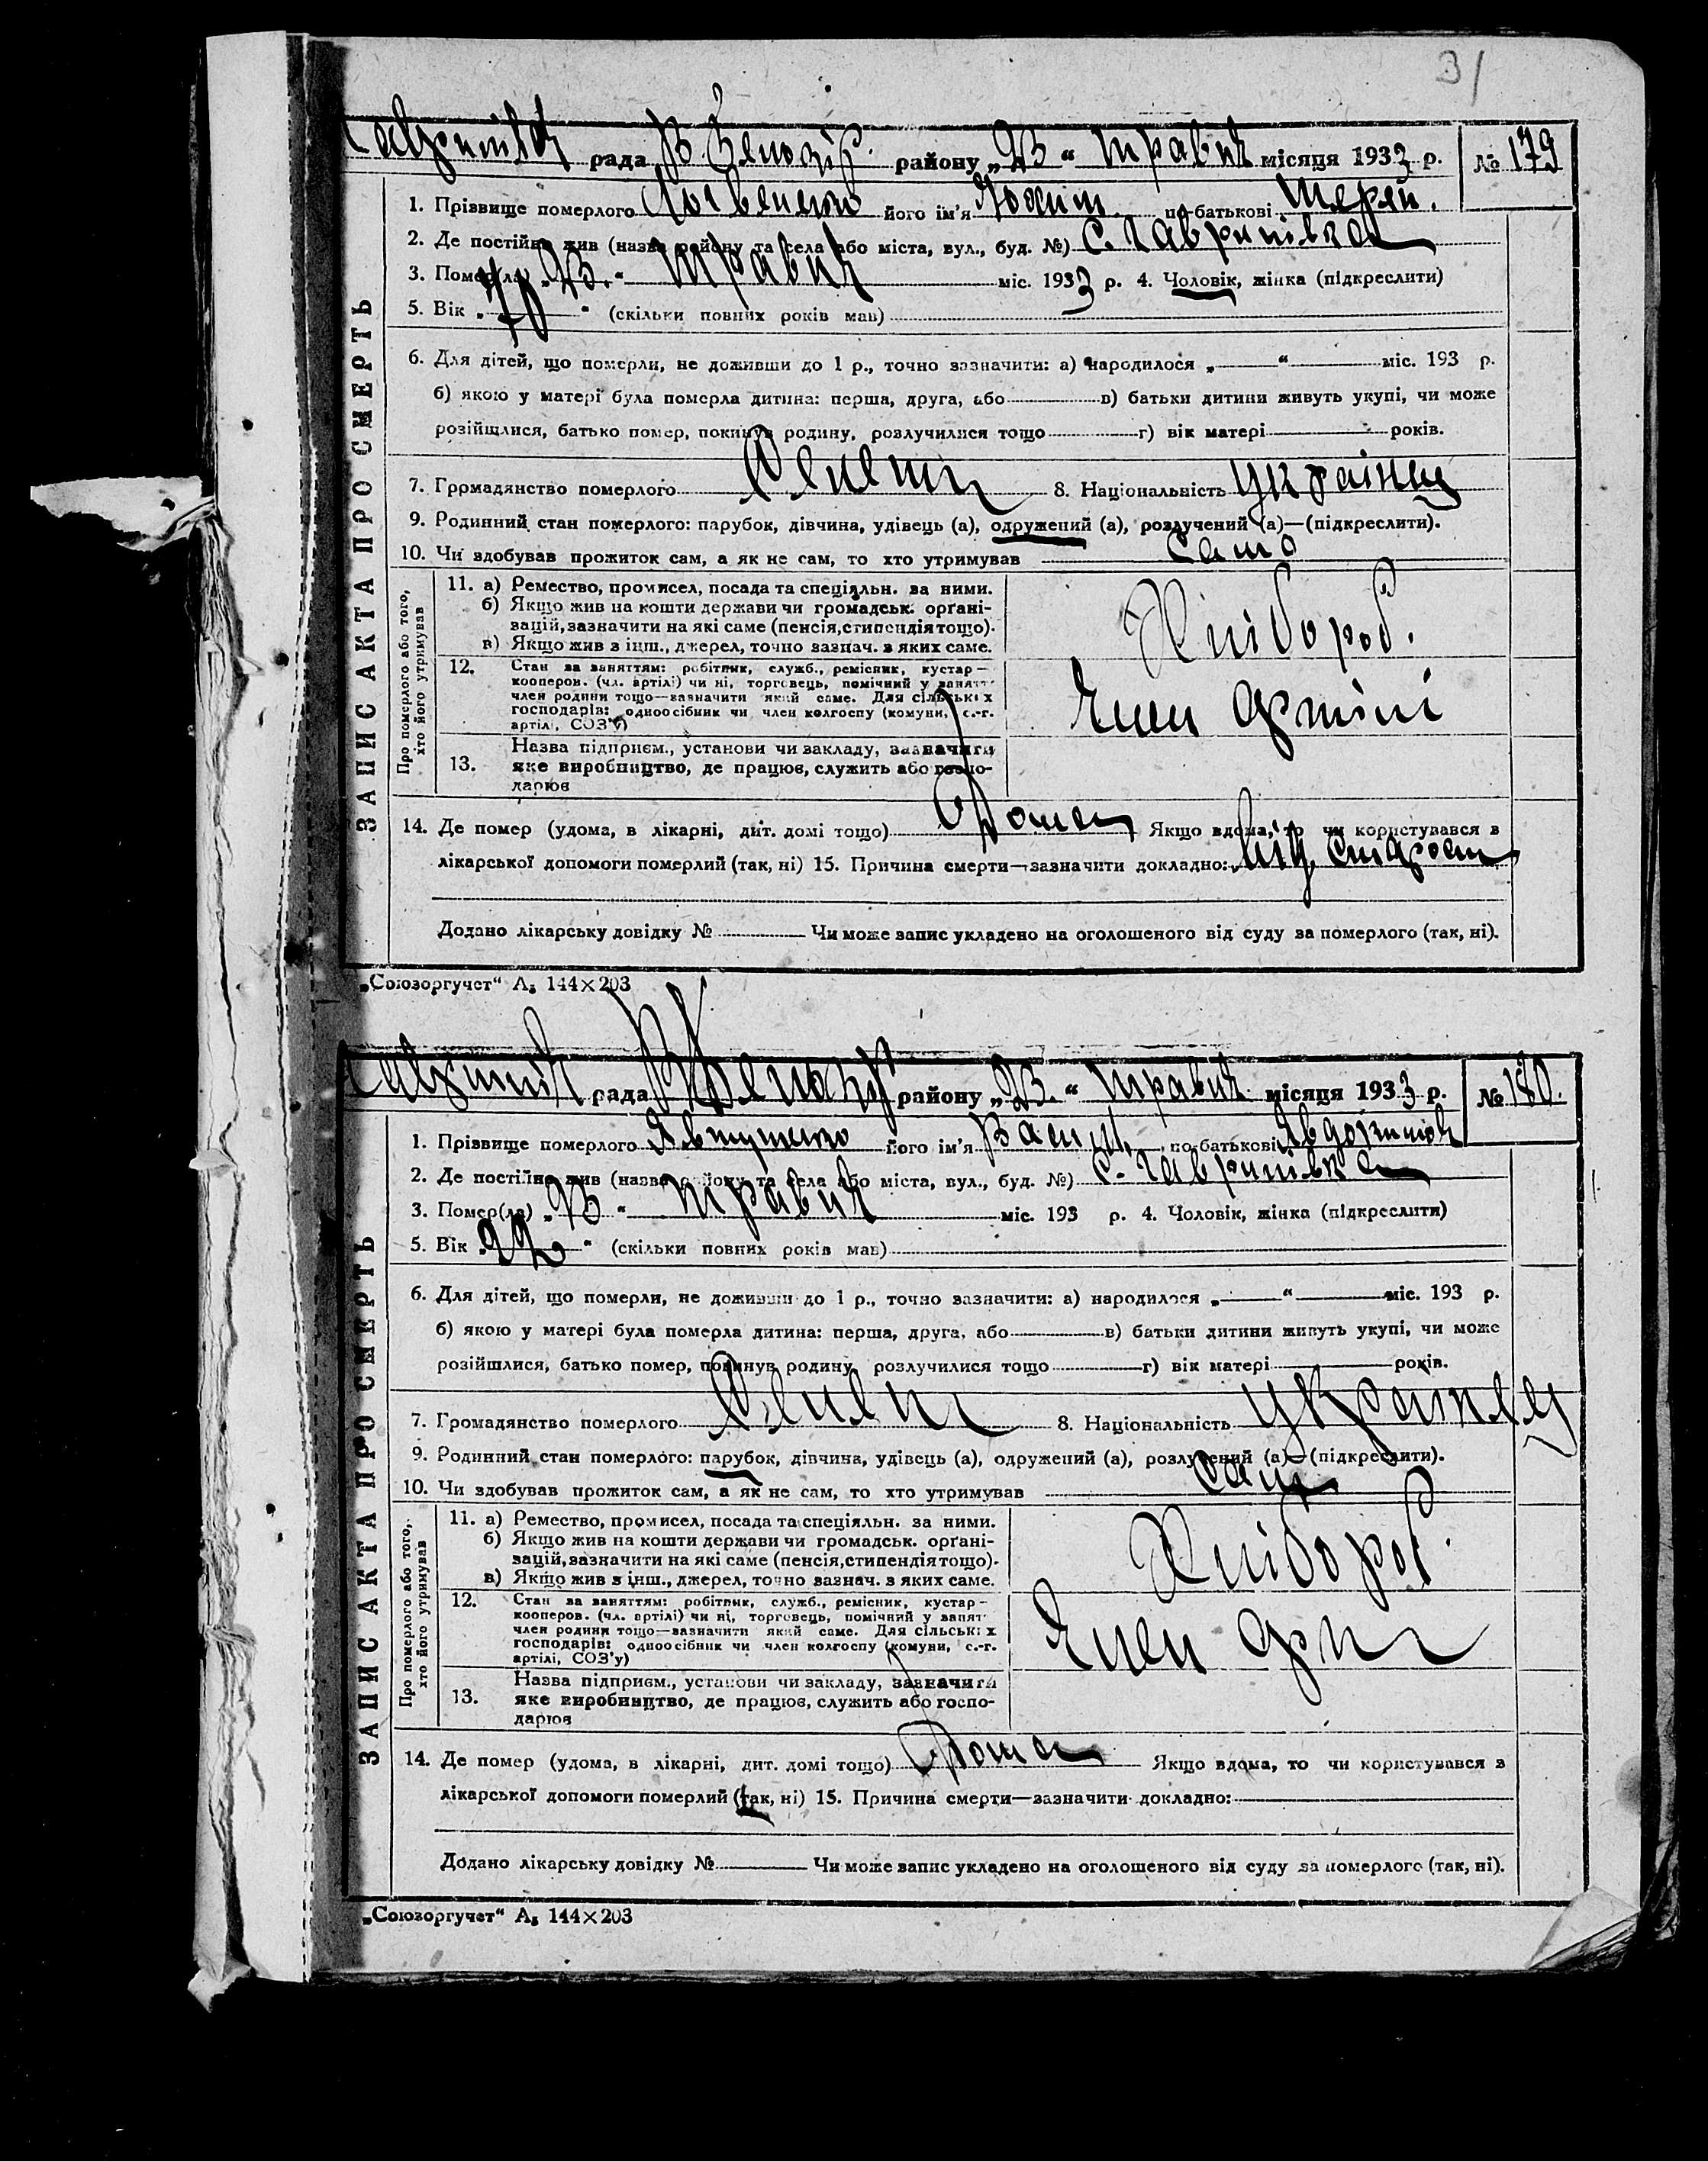 31
рада району „23“ травня місяця 1933 р. № 179
1. Прізвище померлого Логвененко його ім'я Яохим по батькові
2. Де постійно жив (назва району та села або міста, вул., буд. №) с. Гаврилівка
3. Помер(ла) „23.“ травня міс. 1933 р. 4. Чоловік, жінка (підкреслити)
5. Вік „70“ (скільки повних років мав)
6. Для дітей, що померли, не доживши до 1 р., точно зазначити: а) народилося „ “ міс. 193 р.
б) якою у матері була померла дитина: перша, друга, або в) батьки дитини живуть укупі, чи може
розійшлися, батько помер, покинув родину, розлучилися тощо г) вік матері років.
7. Громадянство померлого 8. Національність українец
9. Родинний стан померлого: парубок, дівчина, удівець (а), одружений (а), розлучений (а)—(підкреслити).
10. Чи здобував прожиток сам, а як не сам, то хто утримував само
ЗАПИС АКТА ПРО СМЕРТЬ
Про померлого або того, хто його утримував
11. а) Ремество, промисел, посада та спеціяльн. за ними.
б) Якщо жив на кошти держави чи громадськ. орґані-
зацій, зазначити на які саме (пенсія, стипендія тощо).
в) Якщо жив з інш., джерел, точно зазнач. з яких саме.
Хлібороб.
12. Стан за заняттям: робітник, служб., ремісник, кустар—
кооперов. (чл. артілі) чи ні, торговець, помічний у занятт
член родини тощо—зазначити який саме. Для сільських
господарів: одноосібник чи член колгоспу (комуни, с.-г.
артілі, СОЗ'у)
Член артілі
13. Назва підприєм., установи чи закладу, зазначити
яке виробництво, де працює, служить або госпо-
дарює
14. Де помер (удома, в лікарні, дит. домі тощо) Дома Якщо вдома, то чи користувався з
лікарської допомоги померлий (так, ні) 15. Причина смерти—зазначити докладно: від старости
Додано лікарську довідку № Чи може запис укладено на оголошеного від суду за померлого (так, ні).
„Союзоргучет“ А₅ 144×203
рада району „23.“ травня місяця 1933 р. № 180.
1. Прізвище померлого Явтушенко його ім'я Васил по батькові
2. Де постійно жив (назва району та села або міста, вул., буд. №) с. Гаврилівка
3. Помер(ла) „23“ травня міс. 193 р. 4. Чоловік, жінка (підкреслити)
5. Вік „22“ (скільки повних років мав)
6. Для дітей, що померли, не доживши до 1 р., точно зазначити: а) народилося „ “ міс. 193 р.
б) якою у матері була померла дитина: перша, друга, або в) батьки дитини живуть укупі, чи може
розійшлися, батько помер, покинув родину, розлучилися тощо г) вік матері років.
7. Громадянство померлого 8. Національність
9. Родинний стан померлого: парубок, дівчина, удівець (а), одружений (а), розлучений (а)—(підкреслити).
10. Чи здобував прожиток сам, а як не сам, то хто утримував
ЗАПИС АКТА ПРО СМЕРТЬ
Про померлого або того, хто його утримував
11. а) Ремество, промисел, посада та спеціяльн. за ними.
б) Якщо жив на кошти держави чи громадськ. орґані-
зацій, зазначити на які саме (пенсія, стипендія тощо).
в) Якщо жив з інш., джерел, точно зазнач. з яких саме.
Хлібороб.
12. Стан за заняттям: робітник, служб., ремісник, кустар—
кооперов. (чл. артілі) чи ні, торговець, помічний у занят
член родини тощо—зазначити який саме. Для сільських
господарів: одноосібник чи член колгоспу (комуни, с.-г.
артілі, СОЗ'у)
Член
13. Назва підприєм., установи чи закладу, зазначити
яке виробництво, де працює, служить або госпо-
дарює
14. Де помер (удома, в лікарні, дит. домі тощо) Дома Якщо вдома, то чи користувався з
лікарської допомоги померлий (так, ні) 15. Причина смерти—зазначити докладно:
Додано лікарську довідку № Чи може запис укладено на оголошеного від суду за померлого (так, ні).
„Союзоргучет“ А₅ 144×203